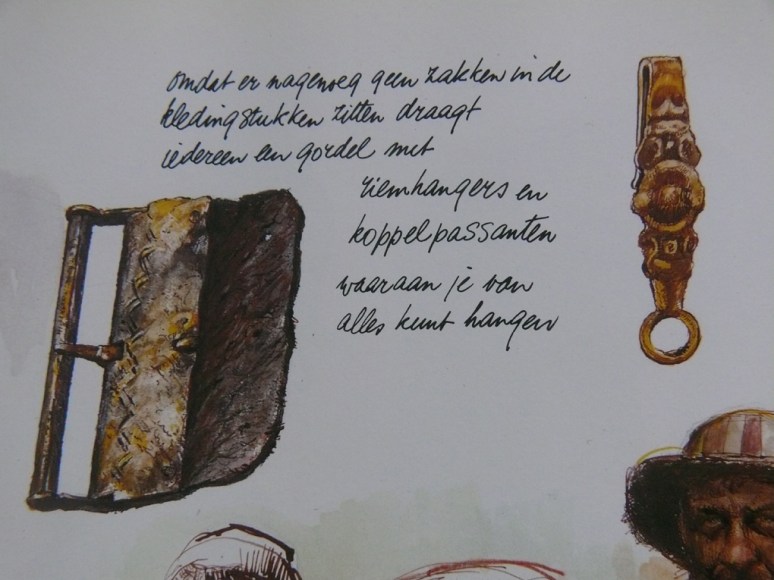 omdat er nagenoeg geen zakken in de
kledingstukken zitten draagt
iedereen een gordel met
riemhangers en
koppelpassanten
waaraan je van
alles kunt hangen